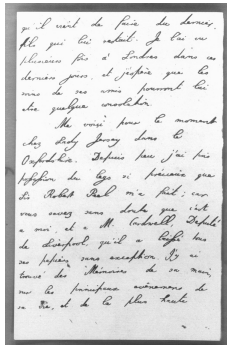 qu'il vient de faire du dernier
fils qui lui restait. Je l'ai vu
plusieurs fois à Londres dans ces
derniers jours, et j'espère que les
mots de ses amis pourront lui
etre quelque consolation.
Me voici pour le moment
chez Lady Jersey dans le
Oxfordshire. Depuis peu j'ai pris
possession du legs si précieux que
Sir Robert Peel m'a fait; car
vous savez sans doute que c'est
a moi, et a M. Cardwell Deputé
de Liverpool, qu'il a laissé tous
ses papiers sans exception. J'y ai
trouvé des Mémoires de sa main,
sur les principaux evénemens de
sa Vie, et de la plus haute